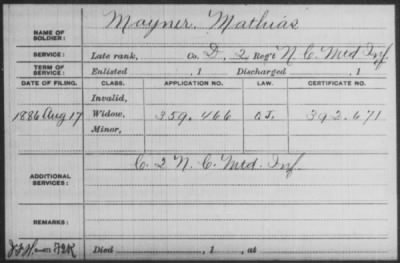 NAME OF SOLDIER: Mayner, Mathias
SERVICE: Late rank, Co. D, 2 Reg't N. C. Mtd Inf.
TERM OF SERVICE: Enlisted , 1 Discharged , 1
DATE OF FILING. CLASS. APPLICATION NO. LAW. CERTIFICATE NO.
Invalid,
1886 Aug 17 Widow, 359.466 O.S. 392.671
Minor,
ADDITIONAL SERVICES: C. 2 N. C. Mtd. Inf.
REMARKS:
Died , 1 , at